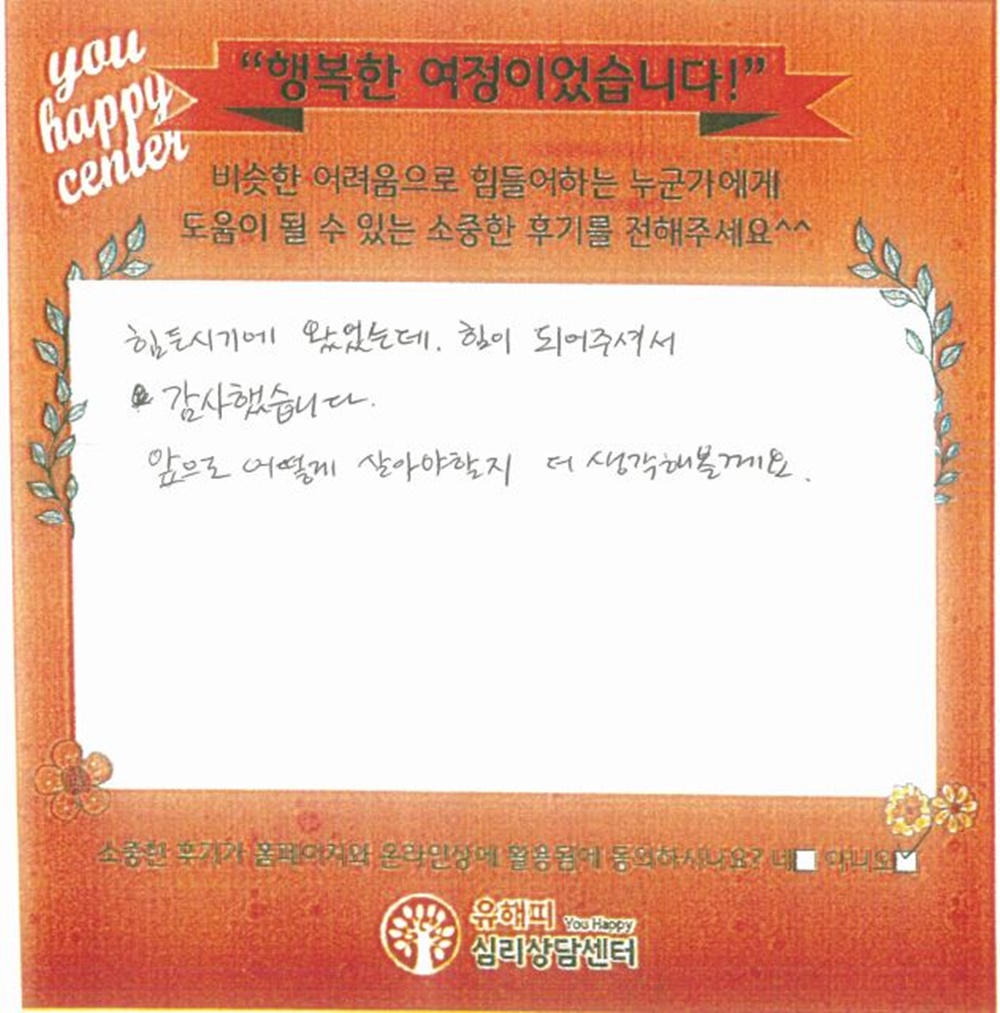 you
happy
center
“행복한 여정이었습니다!”
비슷한 어려움으로 힘들어하는 누군가에게
도움이 될 수 있는 소중한 후기를 전해주세요^^
힘든시기에 왔었는데. 힘이 되어주셔서
감사했습니다.
앞으로 어떻게 살아야할지 더 생각해볼께요.
소중한 후기가 홈페이지와 온라인상에 활용됨에 동의하시나요? 네 아니오
유해피 You Happy
심리상담센터